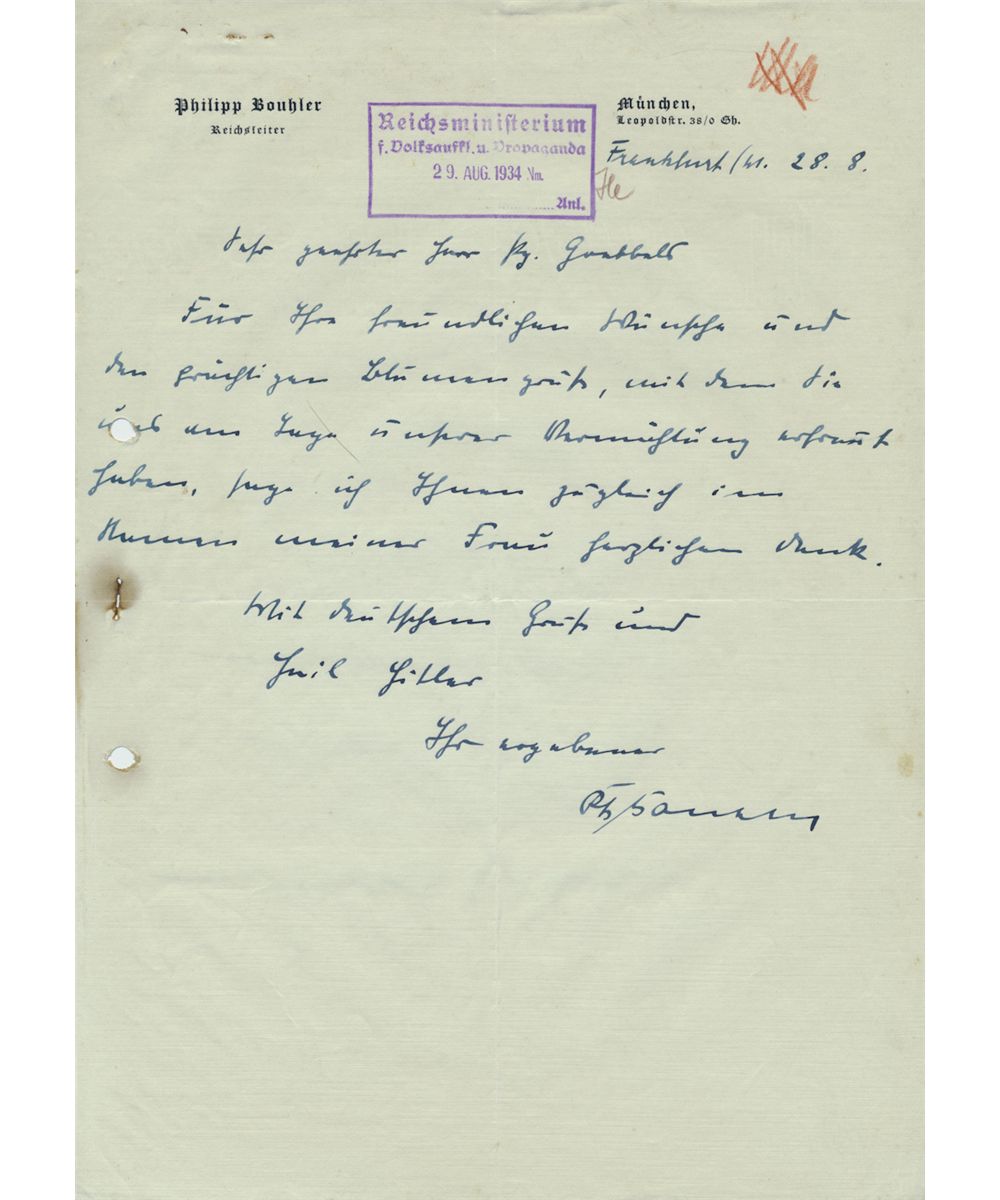 Philipp Bouhler
Reichsleiter
Reichsministerium
f. Volksaufkl. u. Propaganda
29. AUG. 1934 Nm.
Anl.
München,
Leopoldstr. 38/0 Gh.
Frankfurt/M. 28. 8.
Sehr geehrter Herr Pg. Goebbels
Für Ihre freundlichen Wünsche und
den prächtigen Blumengruß, mit dem Sie
uns am Tage unserer Vermählung erfreut
haben, sage ich Ihnen zugleich im
Namen meiner Frau herzlichen Dank.
Mit deutschem Gruß und
Heil Hitler
Ihr ergebener